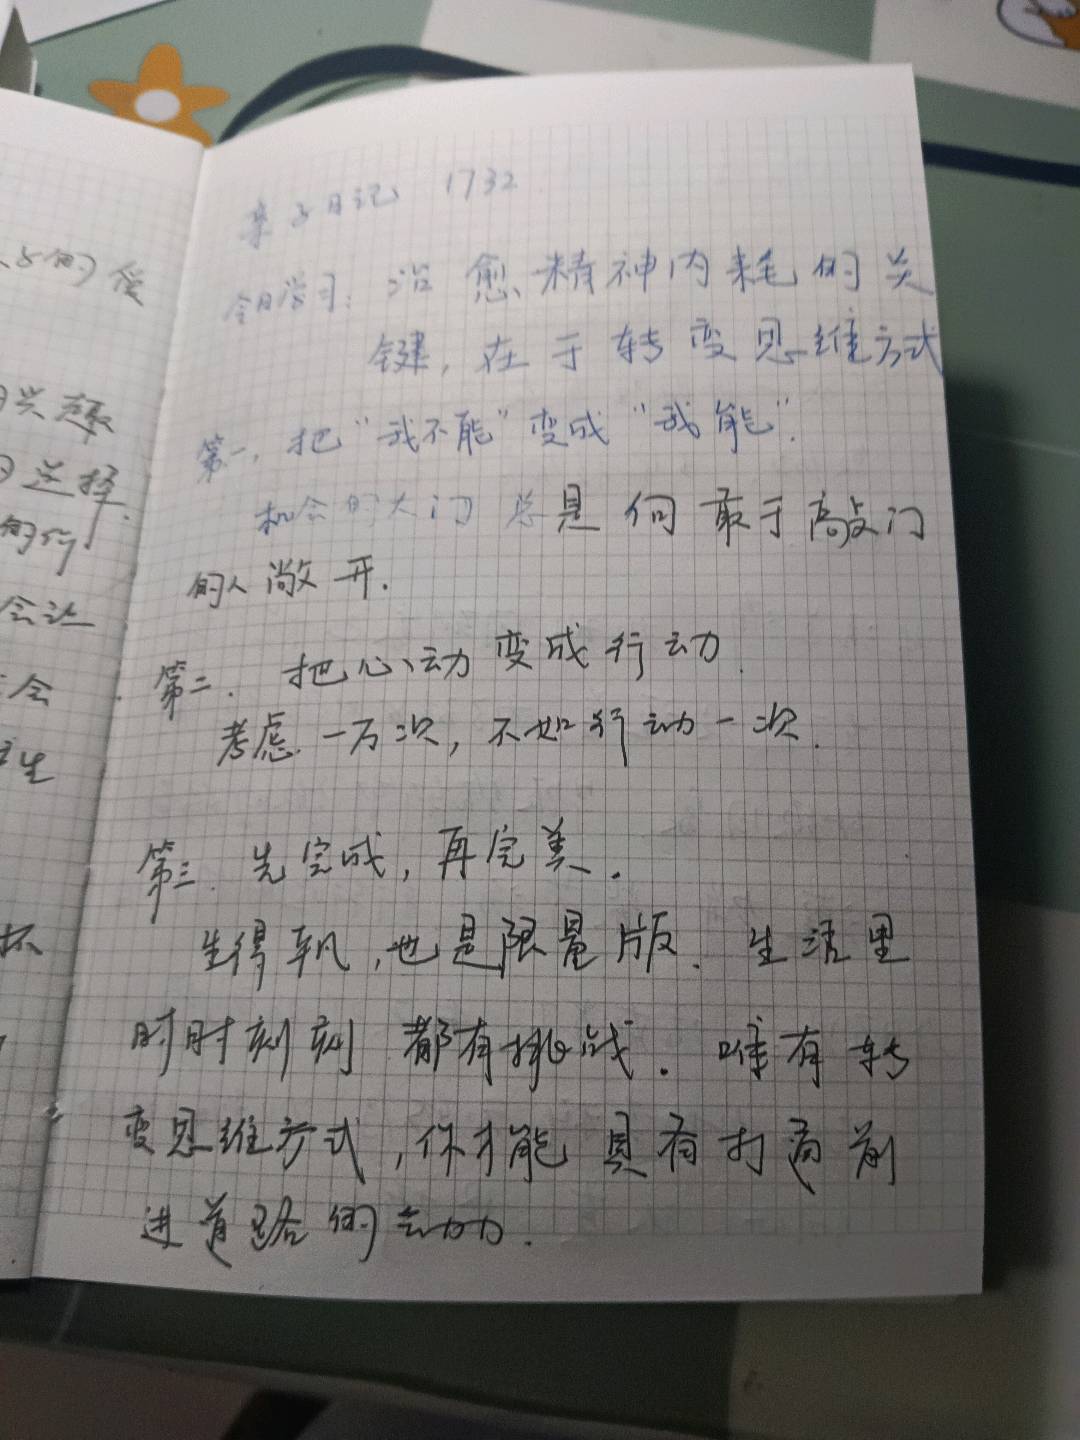 亲子日记 1732
今日学习：治愈精神内耗的关
键，在于转变思维方式
第一，把“我不能”变成“我能”．
机会的大门总是向敢于敲门
的人敞开．
第二．把心动变成行动．
考虑一万次，不如行动一次．
第三．先完成，再完美．
生得平凡，也是限量版．生活里
时时刻刻都有挑战．唯有转
变思维方式，你才能具有打通前
进道路的动力．
的
兴趣
选择．
的行
会让
会
生